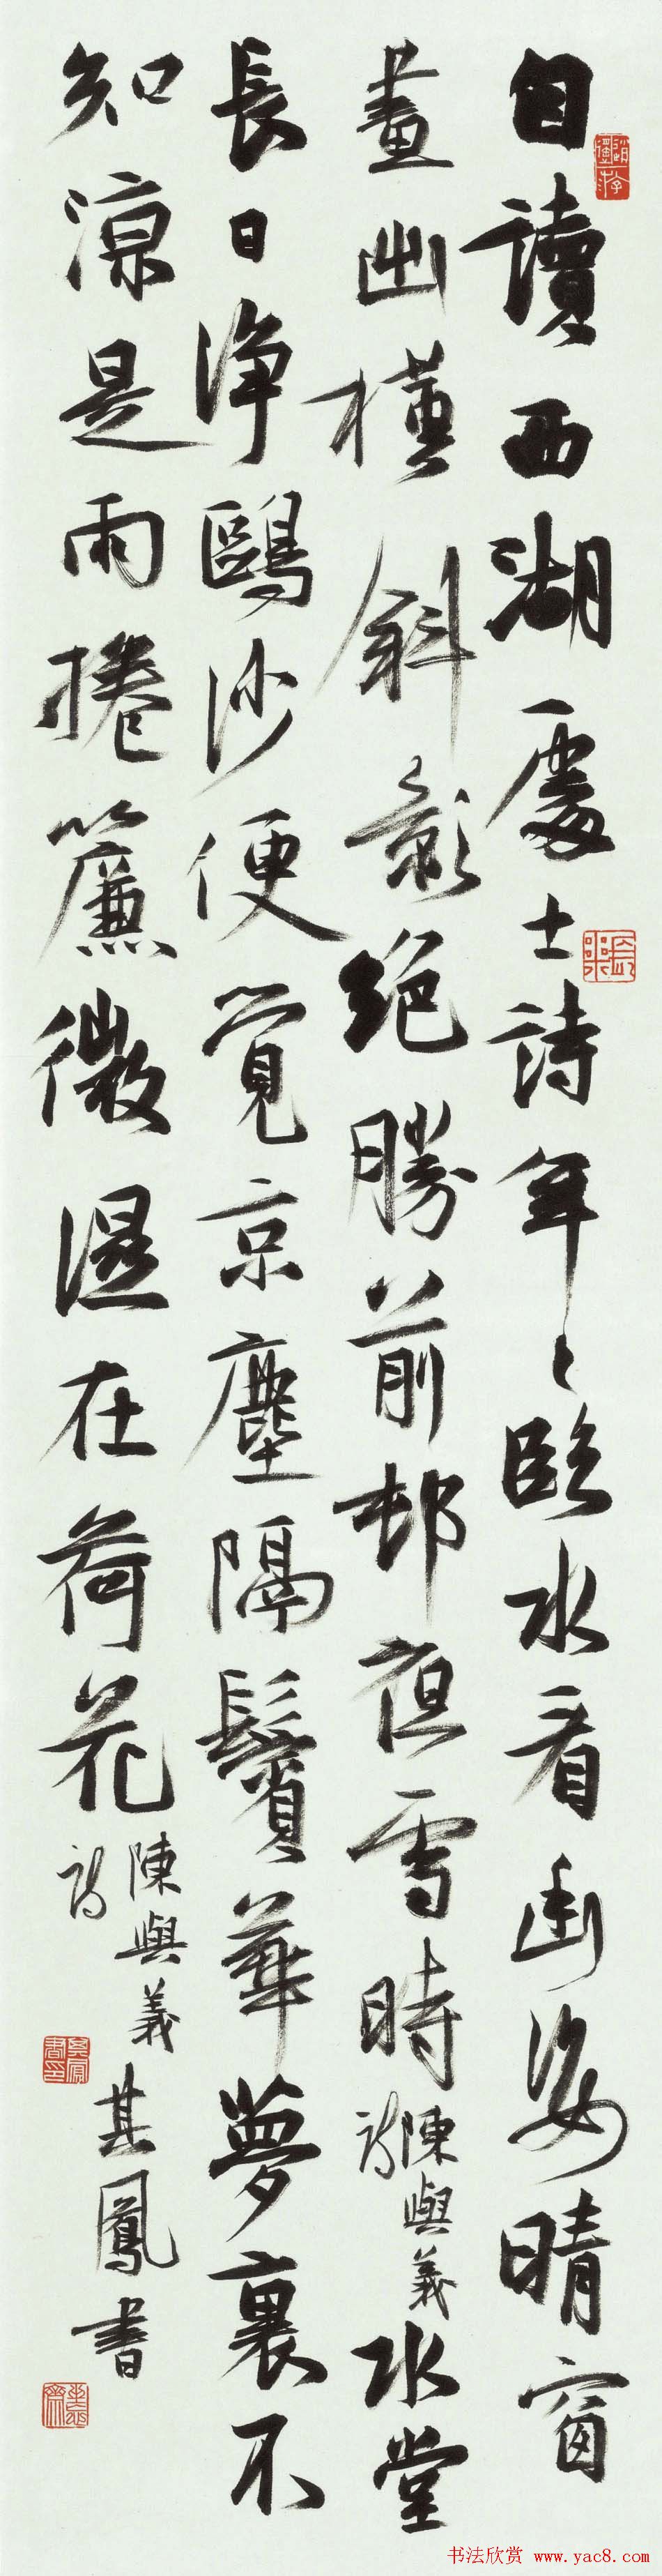 自讀西湖處士詩年々臨水看幽姿晴窗
畫出橫斜影絕勝前邨夜雪時陳與義詩水堂
長日淨鷗沙便覺京塵隔鬢華夢裏不
知涼是雨捲簾微濕在荷花陳與義詩
其鳳書
书法欣赏 www.yac8.com